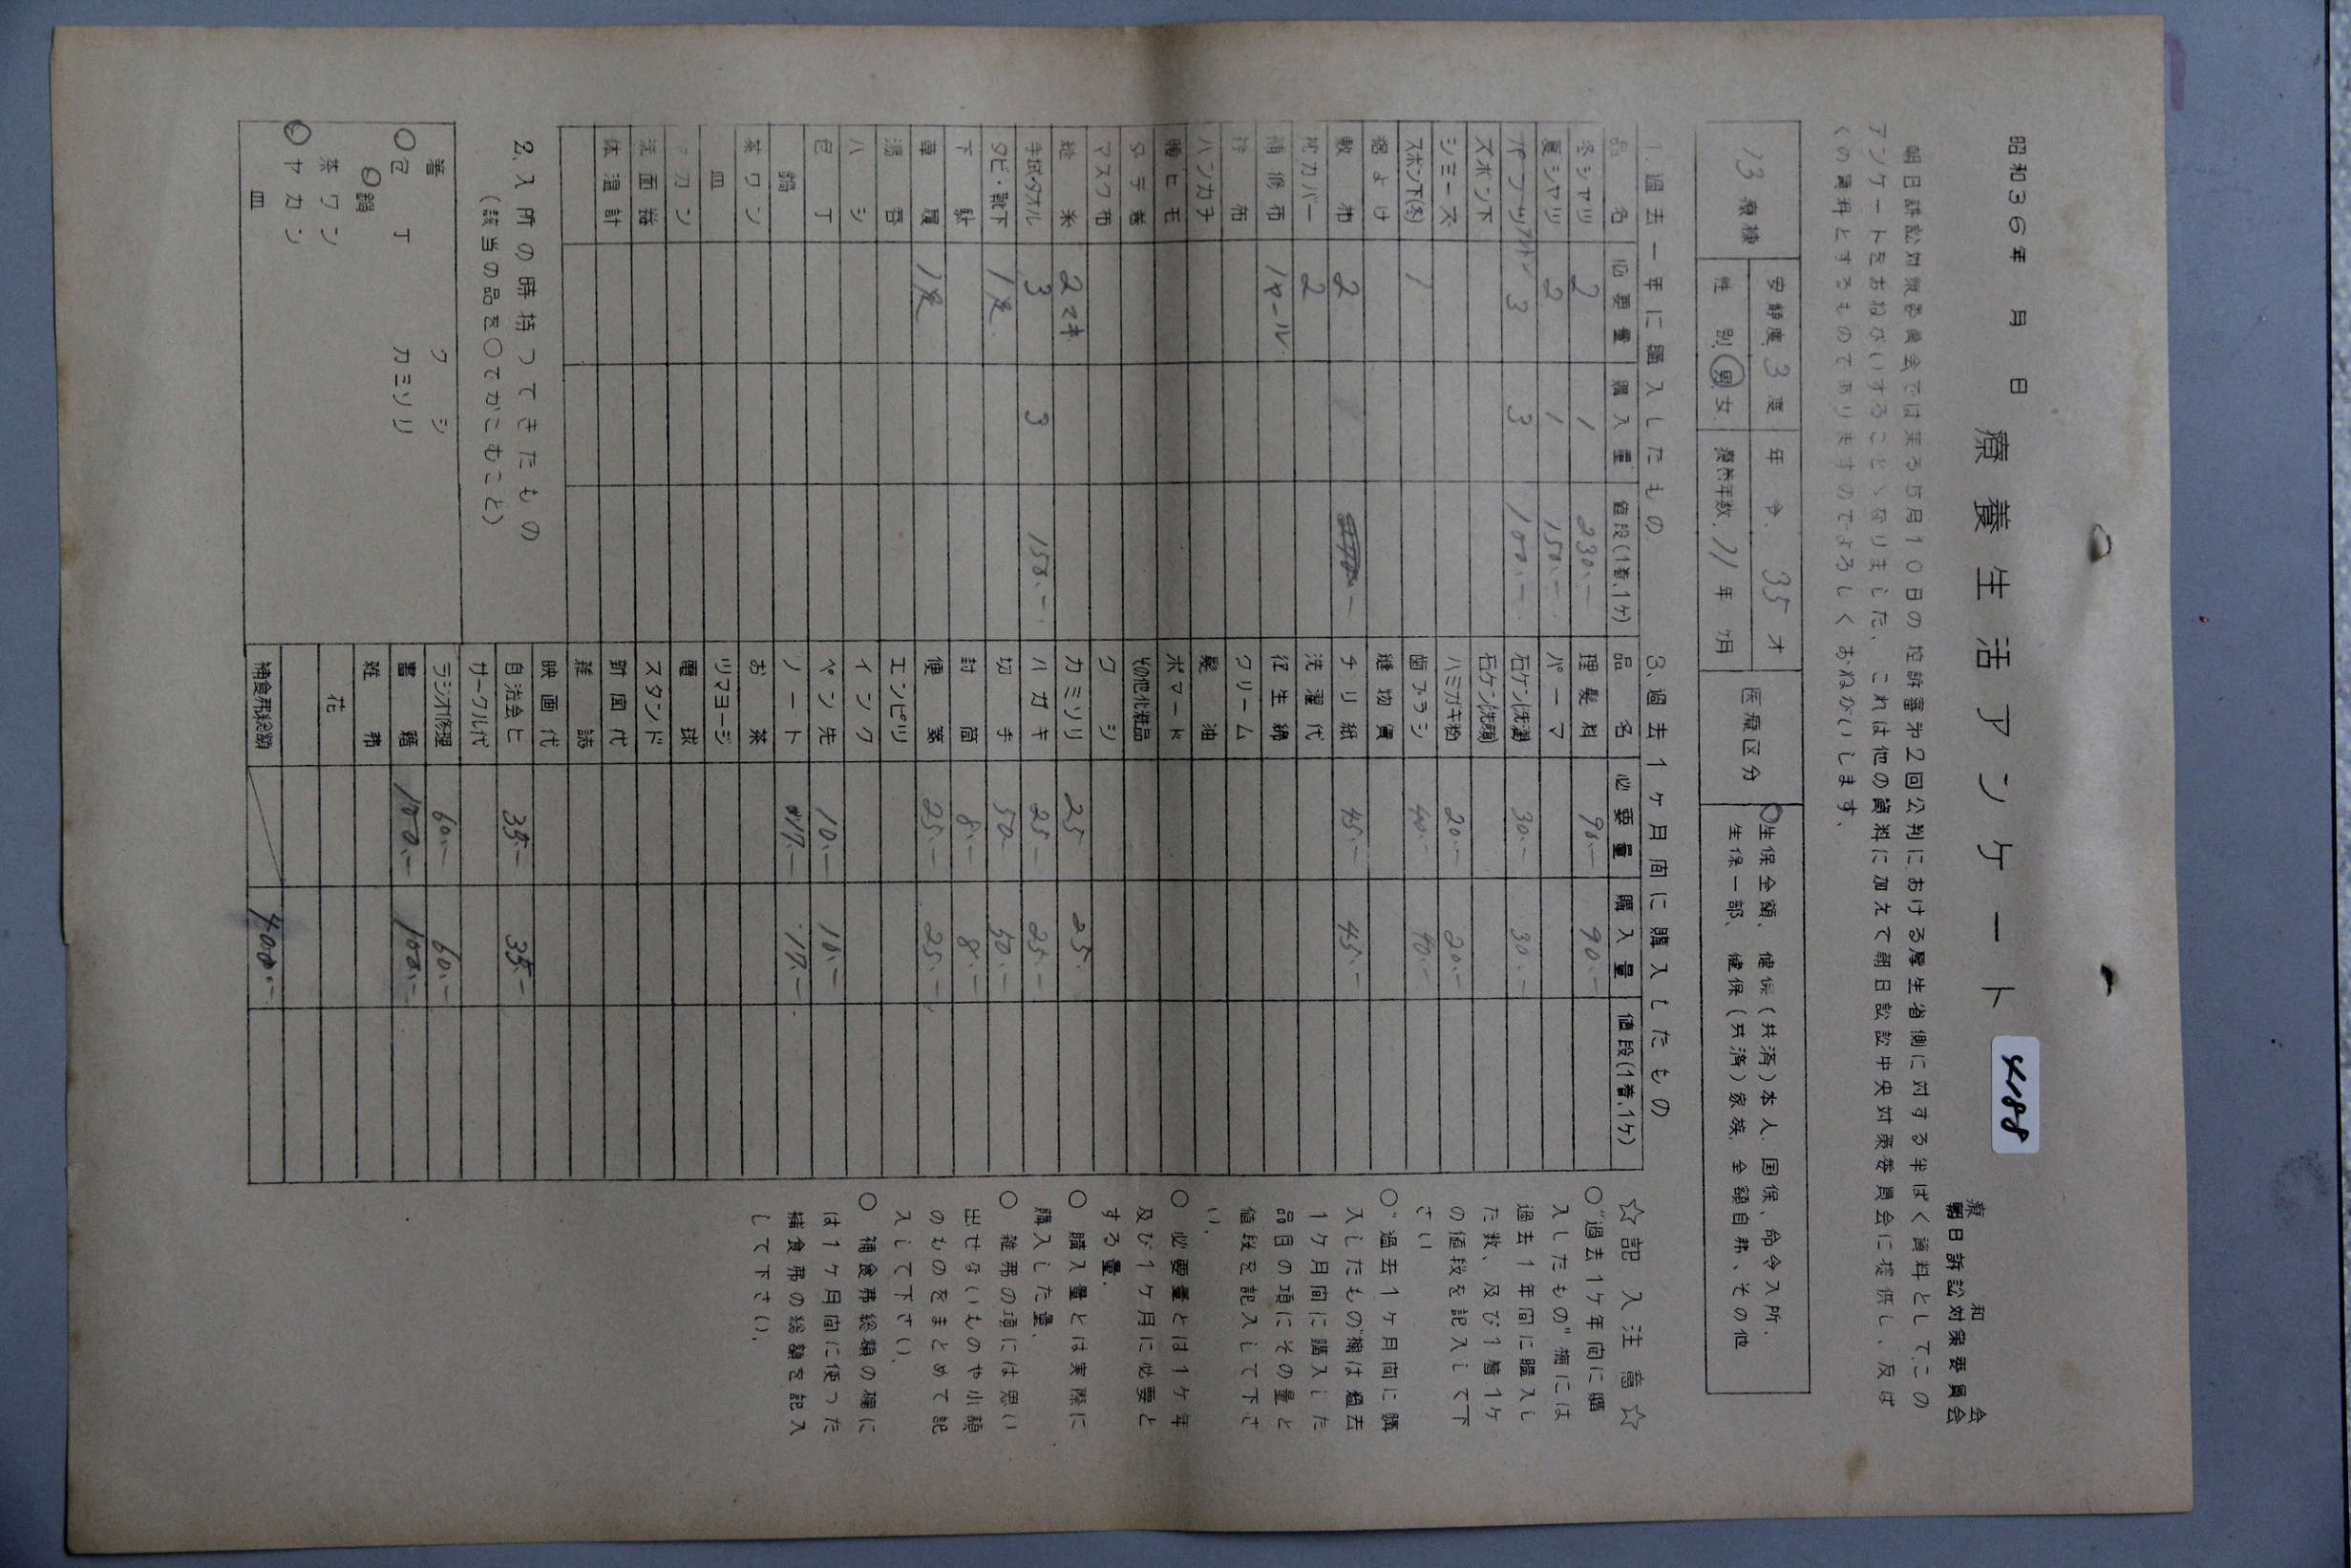 昭和36年　月　日
療養生活アンケート
4188
療和会
朝日訴訟対策委員会
朝日訴訟対策委員会では来る5月10日の控訴審第2回公判における厚生省側に対する半ばく資料としてこの
アンケートをおねがいすることゝなりました、これは他の資料に加えて朝日訴訟中央対策委員会に提供し、反ば
くの資料とするものでありますのでよろしくおねがいします。
13病棟
安静度 3度
年令. 35才
性別 男 女
療养年数. 11年　ケ月
医療区分
生保全額、健保(共済)本人. 国保、命令入所.
生保一部、健保(共済)家族. 全額自弗、その他
1. 過去一年に購入したもの
品名 必要量 購入量 値段(1着、1ケ)
冬シヤツ 2 1 230.-
夏シヤツ 2 1 150.-
パンツ 3 3 100.-
ズボン下
シミーズ
ズボン下(冬) 1
敷布 2
枕カバー 2
補修布 1ヤール
ハンカチ
腰ヒモ
マスク布
2マキ
手拭・タオル 3 3 150.-
タビ・靴下 1足
下駄
草履 1足
湯呑
ハシ
包丁
鍋
茶ワン
皿
ヤカン
洗面器
体温計
2. 入所の時持つてきたもの
(該当の品を○でかこむこと)
箸 クシ
包丁 カミソリ
鍋
茶ワン
ヤカン
皿
3. 過去1ケ月間に購入したもの
品名 必要量 購入量 値段(1着、1ケ)
理髪料 90.- 90.-
パーマ
石ケン(洗濯) 30.- 30.-
石ケン(洗顔)
ハミガキ粉 20.- 20.-
歯ブラシ 40.- 40.-
縫物賃
チリ紙 45.- 45.-
洗濯代
衛生綿
クリーム
髪油
ポマード
その他化粧品
クシ
カミソリ 25 25.
ハガキ 25.- 25.-
切手 50 50.-
封筒 8.- 8.-
便箋 25.- 25.-
エンピツ
インク
ペン先 10.- 10.-
ノート 17.- 17.-
お茶
ツマヨージ
電球
スタンド
新聞代
雑誌
映画代
自治会ヒ 35.- 35.-
サークル代
ラジオ修理 60.- 60.-
書籍 100.- 100.-
雑弗
花
補食弗総額 400.-
☆記入注意☆
○"過去1ケ年間に購
入したもの"欄には
過去1年間に購入し
た数、及び1着1ケ
の値段を記入して下
さい
○"過去1ケ月間に購
入したもの"欄は過去
1ケ月間に購入した
品目の項にその量と
値段を記入して下さ
い.
○ 必要量とは1ケ年
及び1ケ月に必要と
する量.
○ 購入量とは実際に
購入した量.
○ 雑弗の項には思い
出せないものや小額
のものをまとめて記
入して下さい.
○ 補食弗総額の欄に
は1ケ月間に使つた
補食弗の総額を記入
して下さい.